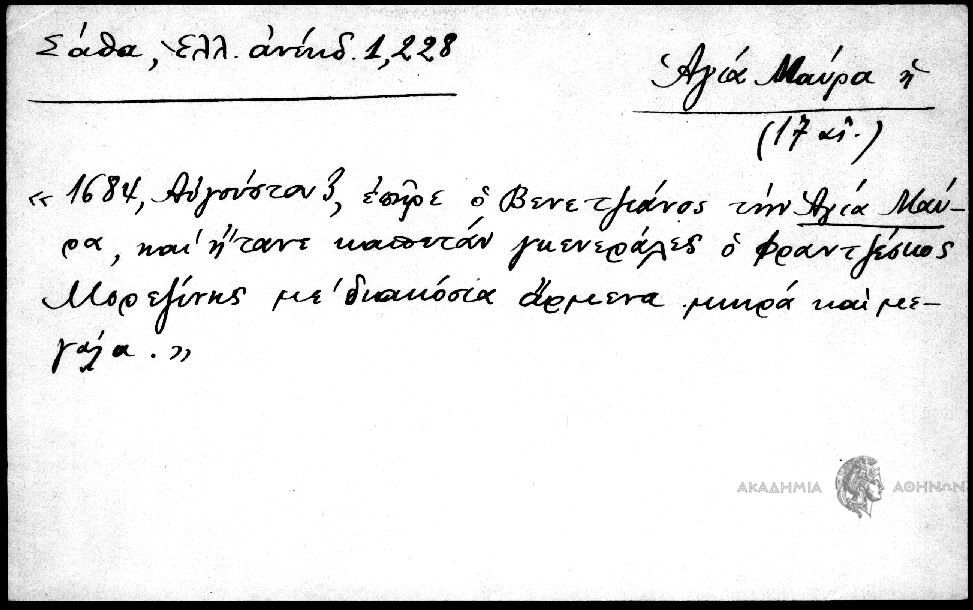 Σάθα, Ἑλλ. ἀνέκδ. 1,228
Ἁγιά Μαύρα ἡ
(17 αἰ.)
« 1684, Αὐγούστου 3, ἐπῆρε ὁ Βενετζιάνος τήν Ἁγιά Μαύ-
ρα, καί ἤτανε καπετάν γκενεράλες ὁ Φραντζέσκος
Μορεζίνης μέ διακόσια ἄρμενα μικρά καί με-
γάλα. »
ΑΚΑΔΗΜΙΑ ΑΘΗΝΩΝ